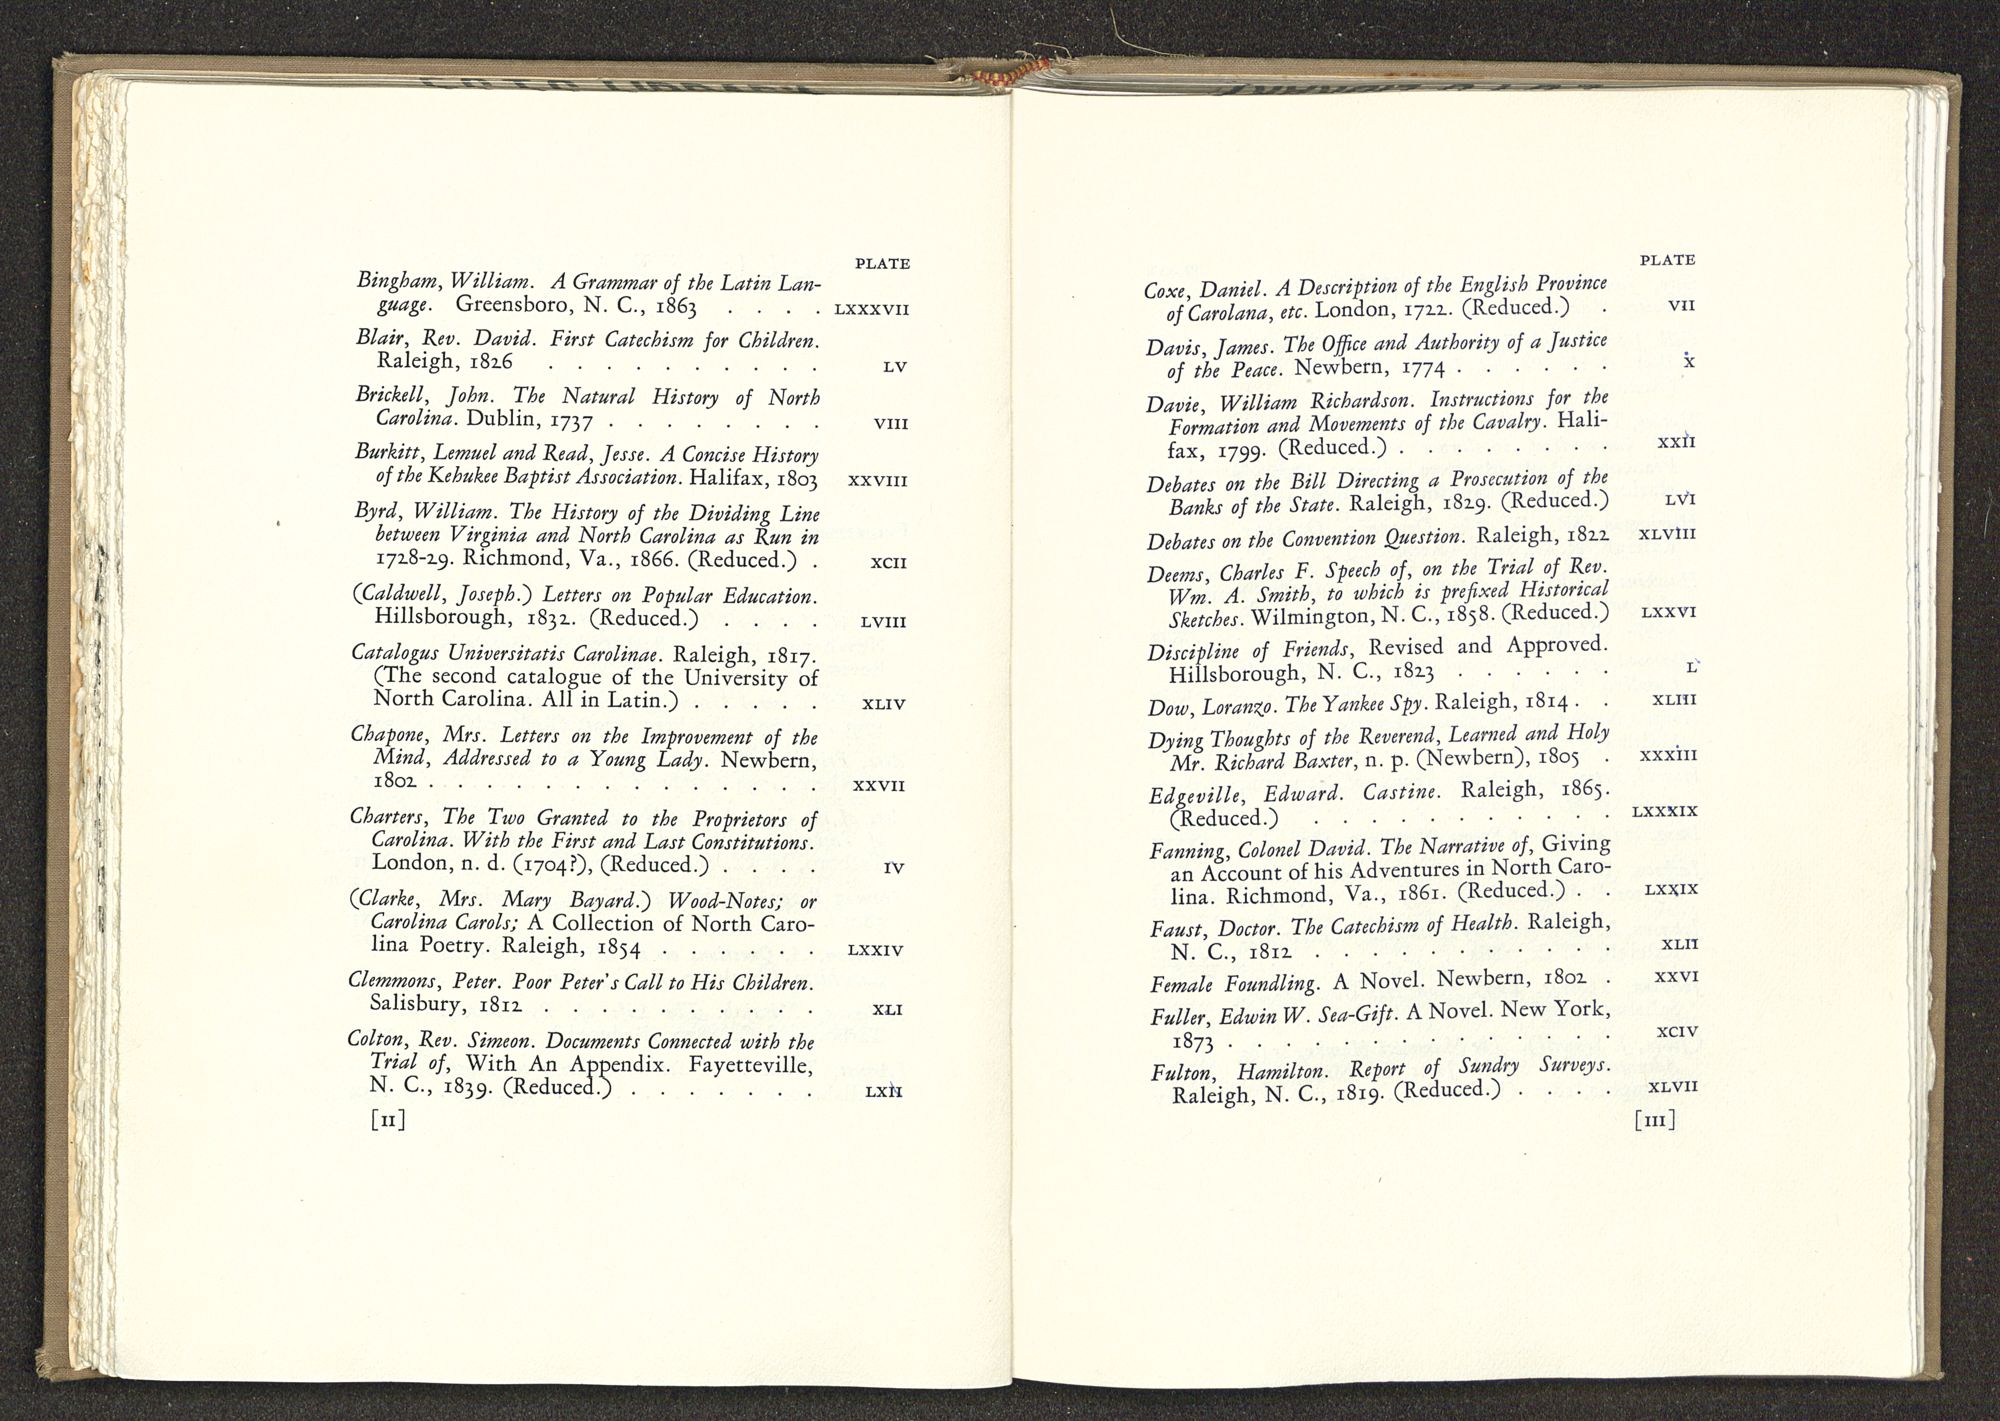 PLATE
Bingham, William. A Grammar of the Latin Lan-
guage. Greensboro, N. C., 1863 . . . . LXXXVII
Blair, Rev. David. First Catechism for Children.
Raleigh, 1826 . . . . . . . . . . LV
Brickell, John. The Natural History of North
Carolina. Dublin, 1737 . . . . . . . . VIII
Burkitt, Lemuel and Read, Jesse. A Concise History
of the Kehukee Baptist Association. Halifax, 1803 XXVIII
Byrd, William. The History of the Dividing Line
between Virginia and North Carolina as Run in
1728-29. Richmond, Va., 1866. (Reduced.) . XCII
(Caldwell, Joseph.) Letters on Popular Education.
Hillsborough, 1832. (Reduced.) . . . . LVIII
Catalogus Universitatis Carolinae. Raleigh, 1817.
(The second catalogue of the University of
North Carolina. All in Latin.) . . . . . XLIV
Chapone, Mrs. Letters on the Improvement of the
Mind, Addressed to a Young Lady. Newbern,
1802 . . . . . . . . . . . . . . XXVII
Charters, The Two Granted to the Proprietors of
Carolina. With the First and Last Constitutions.
London, n. d. (1704?), (Reduced.) . . . . IV
(Clarke, Mrs. Mary Bayard.) Wood-Notes; or
Carolina Carols; A Collection of North Caro-
lina Poetry. Raleigh, 1854 . . . . . . LXXIV
Clemmons, Peter. Poor Peter's Call to His Children.
Salisbury, 1812 . . . . . . . . . . XLI
Colton, Rev. Simeon. Documents Connected with the
Trial of, With An Appendix. Fayetteville,
N. C., 1839. (Reduced.) . . . . . . . LXII
[II]
PLATE
Coxe, Daniel. A Description of the English Province
of Carolana, etc. London, 1722. (Reduced.) . VII
Davis, James. The Office and Authority of a Justice
of the Peace. Newbern, 1774 . . . . . . X
Davie, William Richardson. Instructions for the
Formation and Movements of the Cavalry. Hali-
fax, 1799. (Reduced.) . . . . . . . . XXII
Debates on the Bill Directing a Prosecution of the
Banks of the State. Raleigh, 1829. (Reduced.) LVI
Debates on the Convention Question. Raleigh, 1822 XLVIII
Deems, Charles F. Speech of, on the Trial of Rev.
Wm. A. Smith, to which is prefixed Historical
Sketches. Wilmington, N. C., 1858. (Reduced.) LXXVI
Discipline of Friends, Revised and Approved.
Hillsborough, N. C., 1823 . . . . . . L
Dow, Loranzo. The Yankee Spy. Raleigh, 1814 . . XLIII
Dying Thoughts of the Reverend, Learned and Holy
Mr. Richard Baxter, n. p. (Newbern), 1805 . XXXIII
Edgeville, Edward. Castine. Raleigh, 1865.
(Reduced.) . . . . . . . . . . . LXXXIX
Fanning, Colonel David. The Narrative of, Giving
an Account of his Adventures in North Caro-
lina. Richmond, Va., 1861. (Reduced.) . . LXXIX
Faust, Doctor. The Catechism of Health. Raleigh,
N. C., 1812 . . . . . . . . . . . XLII
Female Foundling. A Novel. Newbern, 1802 . XXVI
Fuller, Edwin W. Sea-Gift. A Novel. New York,
1873 . . . . . . . . . . . . . . XCIV
Fulton, Hamilton. Report of Sundry Surveys.
Raleigh, N. C., 1819. (Reduced.) . . . . XLVII
[III]